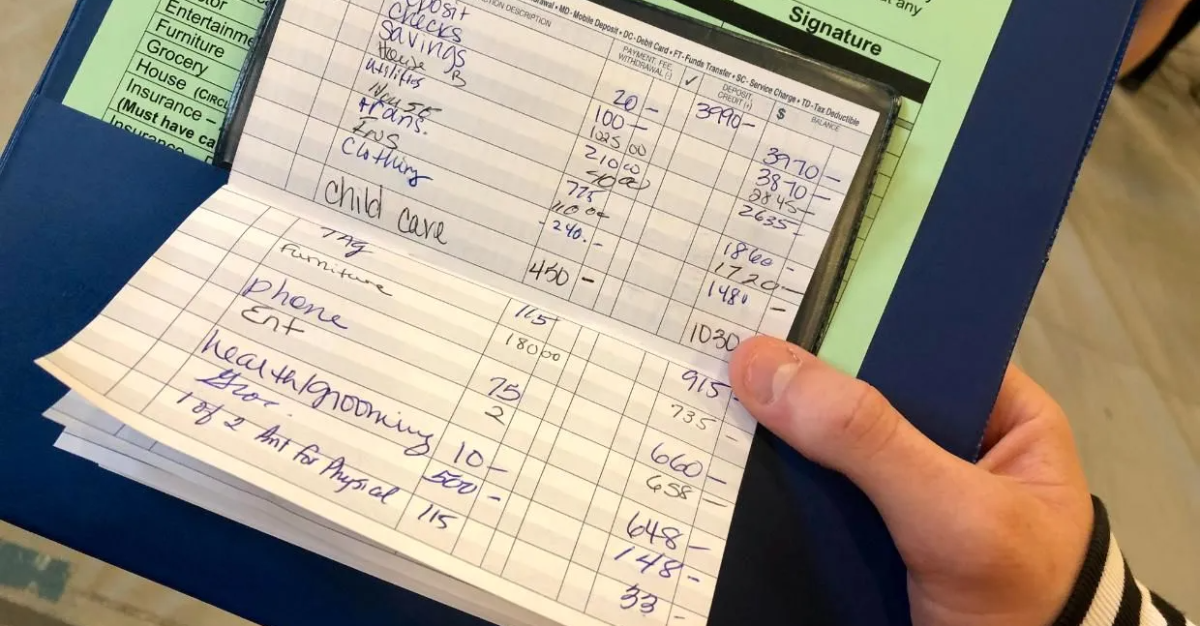 Entertainme
Furniture
Grocery
House (CIRC
Insurance –
(Must have ca
any
Signature
MD - Mobile Deposit • DC - Debit Card • FT - Funds Transfer • SC - Service Charge • TD - Tax Deductible
DESCRIPTION PAYMENT, FEE, WITHDRAWAL (-) ✓ DEPOSIT, CREDIT (+) $ BALANCE
3990-
checks 20 - 3970 -
savings 100 - 3870 -
House B 1025 00 2845 -
utilities 210 00 2635 -
trans. 775 1860 -
Ins 1720 -
Clothing - 240. - 1480 -
child care 450 - 1030
TAG 115 915 -
Furniture 180 00 735 -
phone 75 660 -
Ent 2 658 -
health/grooming 10 - 648 -
Groc. 500 - 148 -
1 of 2 Amt for Physical 115 33 -